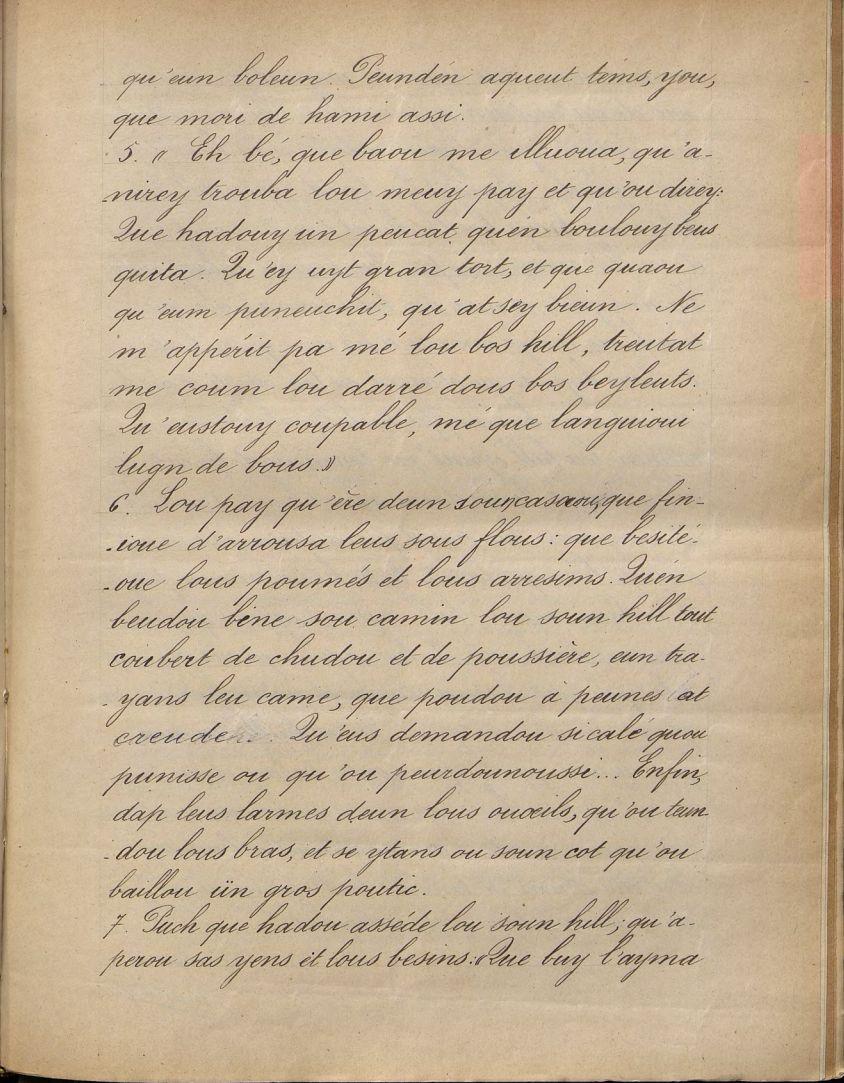 qu'eun boleun. Peundén aqueut téms, you,
que mori de hami assi.
5. « Eh bé, que baou me lluoua, qu'a-
-nirey trouba lou meuy pay et qu'ou direy:
Que hadouy un peucat quén boulouy beus
quita. Qu'ey uyt gran tort, et que quaou
qu'eum puneuchit, qu'at sey bieun. Ne
m'appérit pa mé lou bos hill, treutat
me coum lou darré dous bos beyleuts.
Qu'eustouy coupable, mé que languioui
lugn de bous.»
6. Lou pay qu'ère deun soun casaou, que fin-
-ioue d'arrousa leus sous flous: que besité-
-oue lous poumés et lous arresims. Quén
beudou bine sou camin lou soun hill tout
coubert de chudou et de poussière, eun tra-
-yans leu came, que poudou à peunes at
creude... Qu'eus demandou si calé quou
punisse ou qu'ou peurdounoussi... Enfin,
dap leus larmes deun lous ouœils, qu'ou teun-
-dou lous bras, et se ytans ou soun cot qu'ou
baillou ün gros poutic.
7. Puch que hadou asséde lou soun hill; qu'a-
perou sas yens et lous besins: «Que buy l'ayma